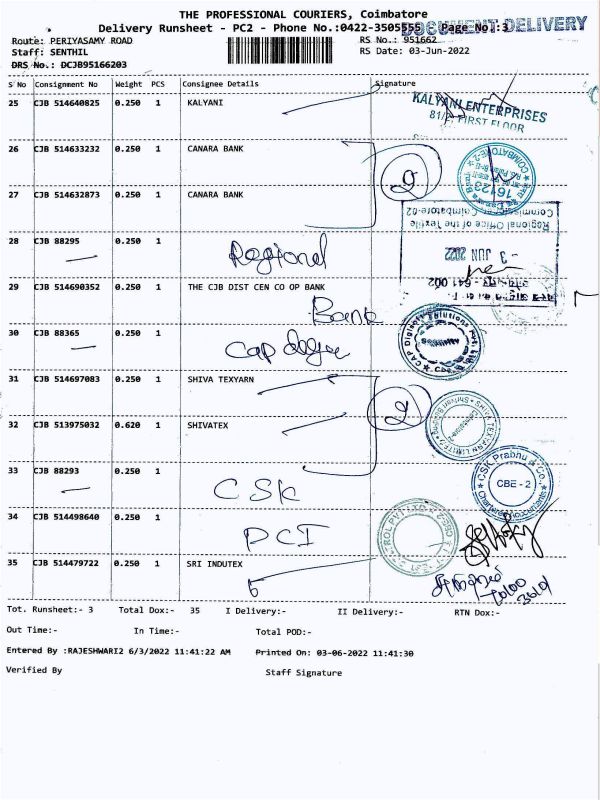 THE PROFESSIONAL COURIERS, Coimbatore
DOCUMENT DELIVERY
Delivery Runsheet - PC2 - Phone No.:0422-3505555 Page No.:3
Route: PERIYASAMY ROAD RS No.: 951662
Staff: SENTHIL RS Date: 03-Jun-2022
DRS No.: DCJB95166203
S No Consignment No Weight PCS Consignee Details Signature
25 CJB 514640825 0.250 1 KALYANI
KALYANI ENTERPRISES
FIRST FLOOR
26 CJB 514633232 0.250 1 CANARA BANK
2
16123
27 CJB 514632873 0.250 1 CANARA BANK
Commissioner Coimbatore-02
Regional Office of the Textile
28 CJB 88295 0.250 1 Regional
- 3 JUN 2022
641 002
29 CJB 514690352 0.250 1 THE CJB DIST CEN CO OP BANK
Bank
30 CJB 88365 0.250 1
CAP Digisoft Solutions Pvt Ltd
31 CJB 514697083 0.250 1 SHIVA TEXYARN
2
SHIVA TEXYARN LIMITED
32 CJB 513975032 0.620 1 SHIVATEX
33 CJB 88293 0.250 1 CSK
CSK Prabhu & Co.,
CBE - 2
Chartered Accountants
34 CJB 514498640 0.250 1 PCI
35 CJB 514479722 0.250 1 SRI INDUTEX
Tot. Runsheet:- 3 Total Dox:- 35 I Delivery:- II Delivery:- RTN Dox:-
Out Time:- In Time:- Total POD:-
Entered By :RAJESHWARI2 6/3/2022 11:41:22 AM Printed On: 03-06-2022 11:41:30
Verified By Staff Signature